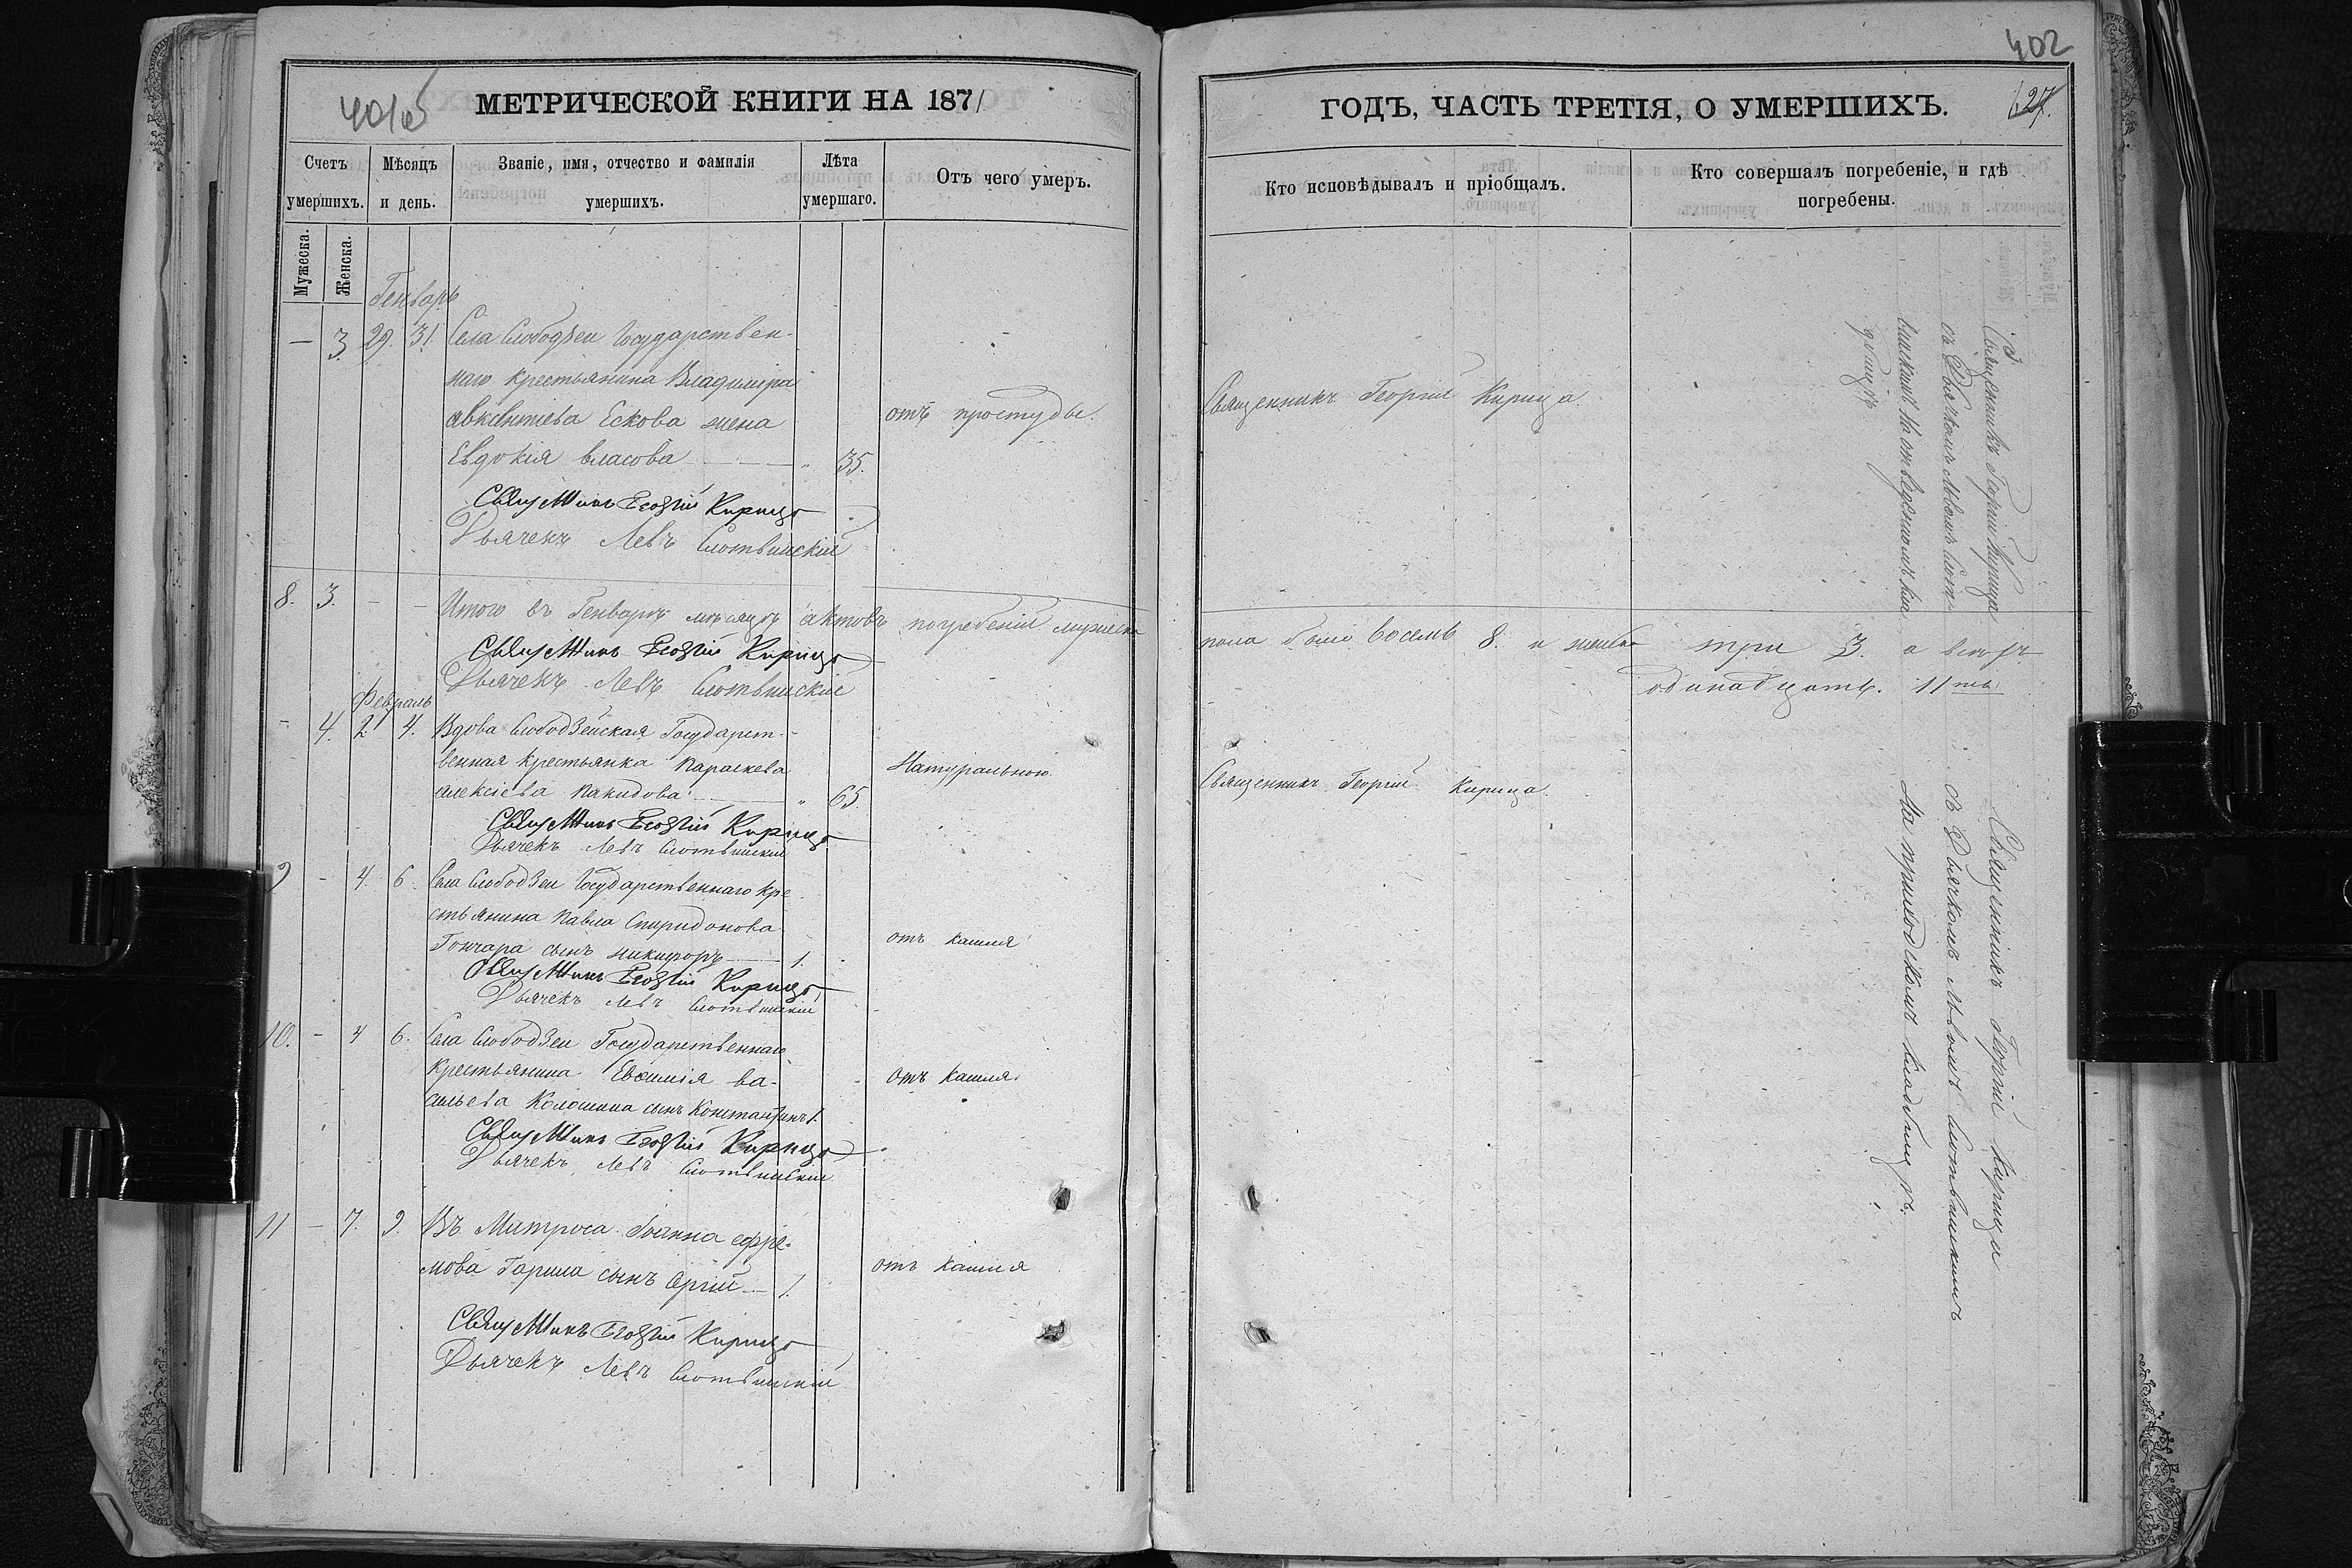 401об
МЕТРИЧЕСКОЙ КНИГИ НА 1871
Счетъ умершихъ.
Мѣсяцъ и день.
Званіе, имя, отчество и фамилія умершихъ.
Лѣта умершаго.
Отъ чего умеръ.
Мужеска.
Женска.
Генварь
— 3. 29. 31. Села Слободзеи Государствен-
наго крестьянина Владиміра
авксентіева Ескова жена отъ простуды.
Евдокія власова — 35.
Священникъ Георгій Кирица
Дьячекъ Левъ Слотвинскій
8. 3. - - Итого въ Генварѣ мѣсяцѣ актовъ погребеній мужеска
Священникъ Георгій Кирица
Дьячекъ Левъ Слотвинскій
Февраль
- 4. 2. 4. Вдова Слободзейская Государст-
венная крестьянка Параскева Натуральною
алексіева Пакидова 65.
Священникъ Георгій Кирица
Дьячекъ Левъ Слотвинскій
9 - 4. 6. Села Слободзеи Государственнаго кре
стьянина Павла Спиридонова
Гончара сынъ никифоръ — 1. отъ кашля
Священникъ Георгій Кирица
Дьячекъ Левъ Слотвинскій
10. - 4 6. Села Слободзеи Государственнаго
крестьянина Евѳимія ва- отъ кашля
сильева Колошина сынъ Константинъ 1.
Священникъ Георгій Кирица
Дьячекъ Левъ Слотвинскій
11 - 7. 9. Матроса Іоанна ефре-
мова сынъ — 1. отъ кашля
Священникъ Георгій Кирица
Дьячекъ Левъ Слотвинскій
402
127.
ГОДЪ, ЧАСТЬ ТРЕТІЯ, О УМЕРШИХЪ.
Кто исповѣдывалъ и пріобщалъ.
Кто совершалъ погребеніе, и гдѣ погребены.
Священникъ Георгій Кирица.
Священникъ Георгій Кирица
съ Дьячкомъ Львомъ Слот-
винскимъ на отведенномъ кла
дбищѣ
пола было восемь 8. и женска три 3. а всѣхъ
одинадцать. 11ть
Священникъ Георгій Кирица.
Священникъ Георгій Кирица
съ Дьячкомъ Львомъ Слотвинскимъ
На приходскомъ кладбищѣ.